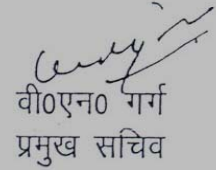 वी0एन0 गर्ग
प्रमुख सचिव